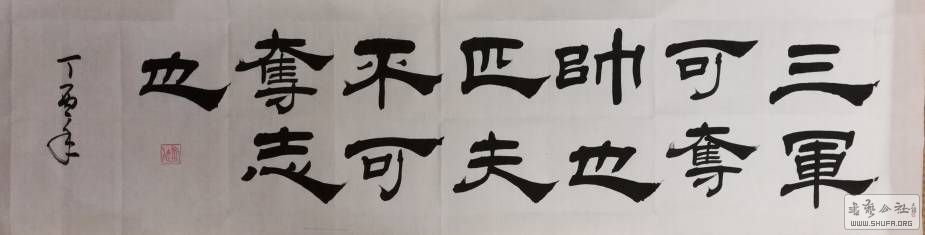 三軍
可奪
帥也
匹夫
不可
奪志
也
丁酉年
书艺公社
WWW.SHUFA.ORG